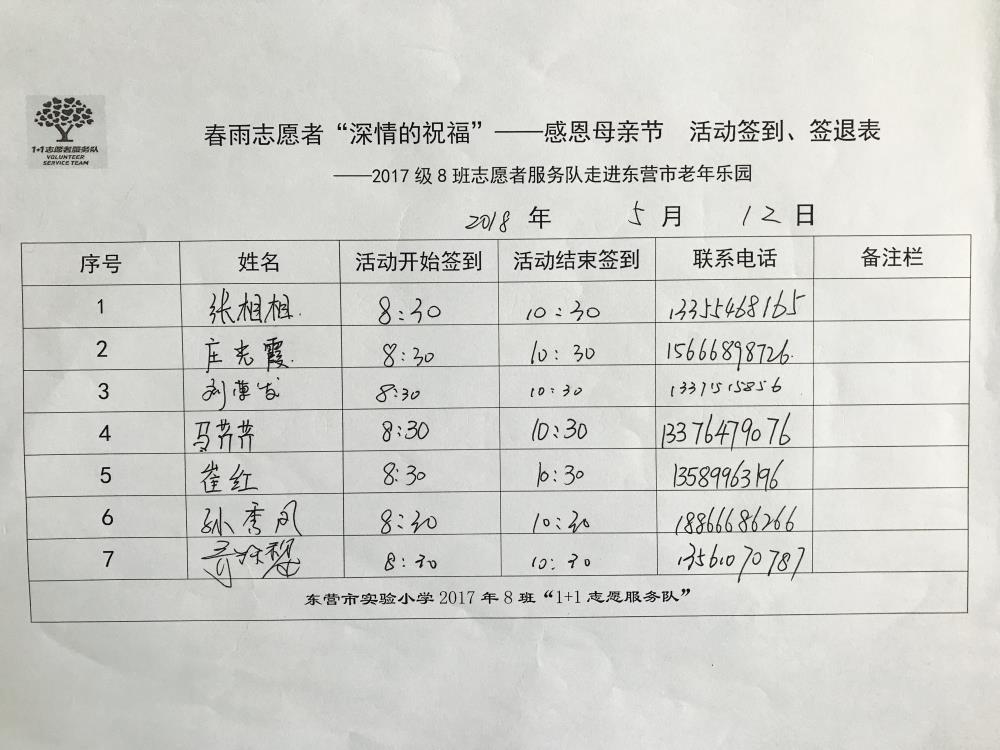 1+1志愿者服务队
VOLUNTEER
SERVICE TEAM
春雨志愿者“深情的祝福”——感恩母亲节 活动签到、签退表
——2017级8班志愿者服务队走进东营市老年乐园
2018 年 5 月 12 日
序号 姓名 活动开始签到 活动结束签到 联系电话 备注栏
1 张相相 8:30 10:30 13355468165
2 庄志霞 8:30 10:30 15666898726
3 刘 8:30 10:30
4 马芹芹 8:30 10:30 13376479076
5 崔红 8:30 10:30 13589963196
6 孙秀凤 8:30 10:30 18866686266
7 8:30 10:30 13561070787
东营市实验小学2017年8班“1+1志愿服务队”